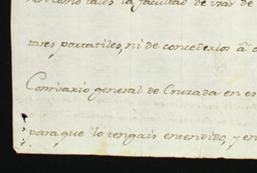 como tales la facultad de usar de
tares portatiles, ni de concederlos â o
Comisario general de Cruzada en es
para que lo tengais entendido, y en